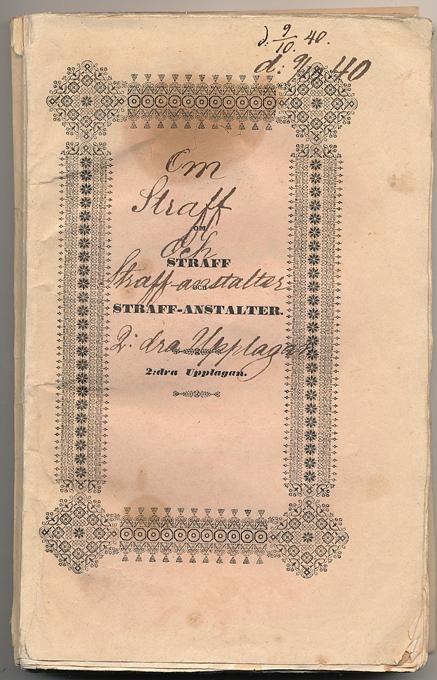 d. 9/10. 40.
d: 9/10 40
Om
Straff
OM
och
STRAFF
Straff-anstalter
OCH
STRAFF-ANSTALTER.
2: dra Upplagan
2:dra Upplagan.